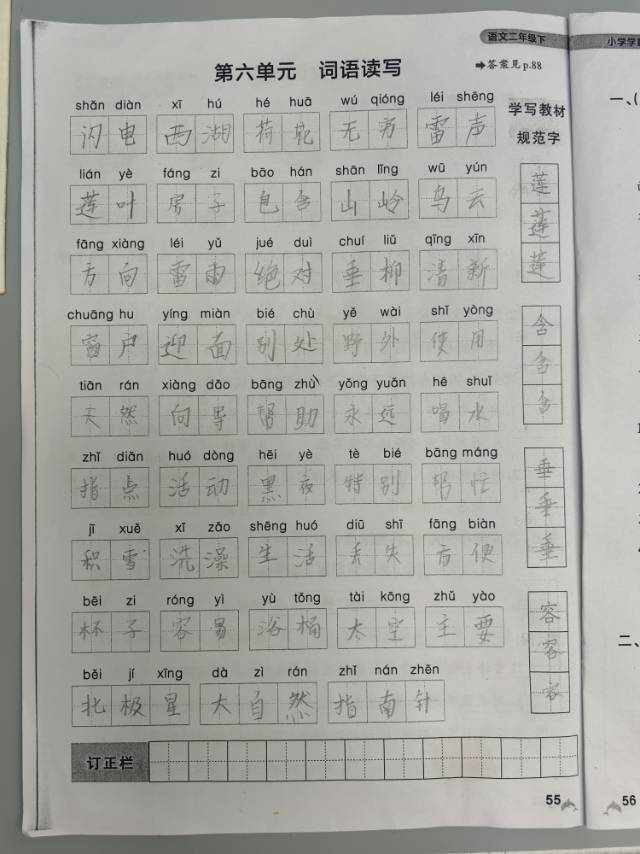 语文二年级下
小学学
第六单元 词语读写
➡答案见p.88
shǎn diàn xī hú hé huā wú qióng léi shēng
闪电 西湖 荷花 无穷 雷声
学写教材
规范字
lián yè fáng zi bāo hán shān lǐng wū yún
莲叶 房子 包含 山岭 乌云
莲
莲
莲
fāng xiàng léi yǔ jué duì chuí liǔ qīng xīn
方向 雷雨 绝对 垂柳 清新
chuāng hu yíng miàn bié chù yě wài shǐ yòng
窗户 迎面 别处 野外 使用
含
含
含
tiān rán xiàng dǎo bāng zhù yǒng yuǎn hē shuǐ
天然 向导 帮助 永远 喝水
zhǐ diǎn huó dòng hēi yè tè bié bāng máng
指点 活动 黑夜 特别 帮忙
垂
垂
垂
jī xuě xǐ zǎo shēng huó diū shī fāng biàn
积雪 洗澡 生活 丢失 方便
bēi zi róng yì yù tǒng tài kōng zhǔ yào
杯子 容易 浴桶 太空 主要
容
容
容
běi jí xīng dà zì rán zhǐ nán zhēn
北极星 大自然 指南针
订正栏
55
56
一、(
二、